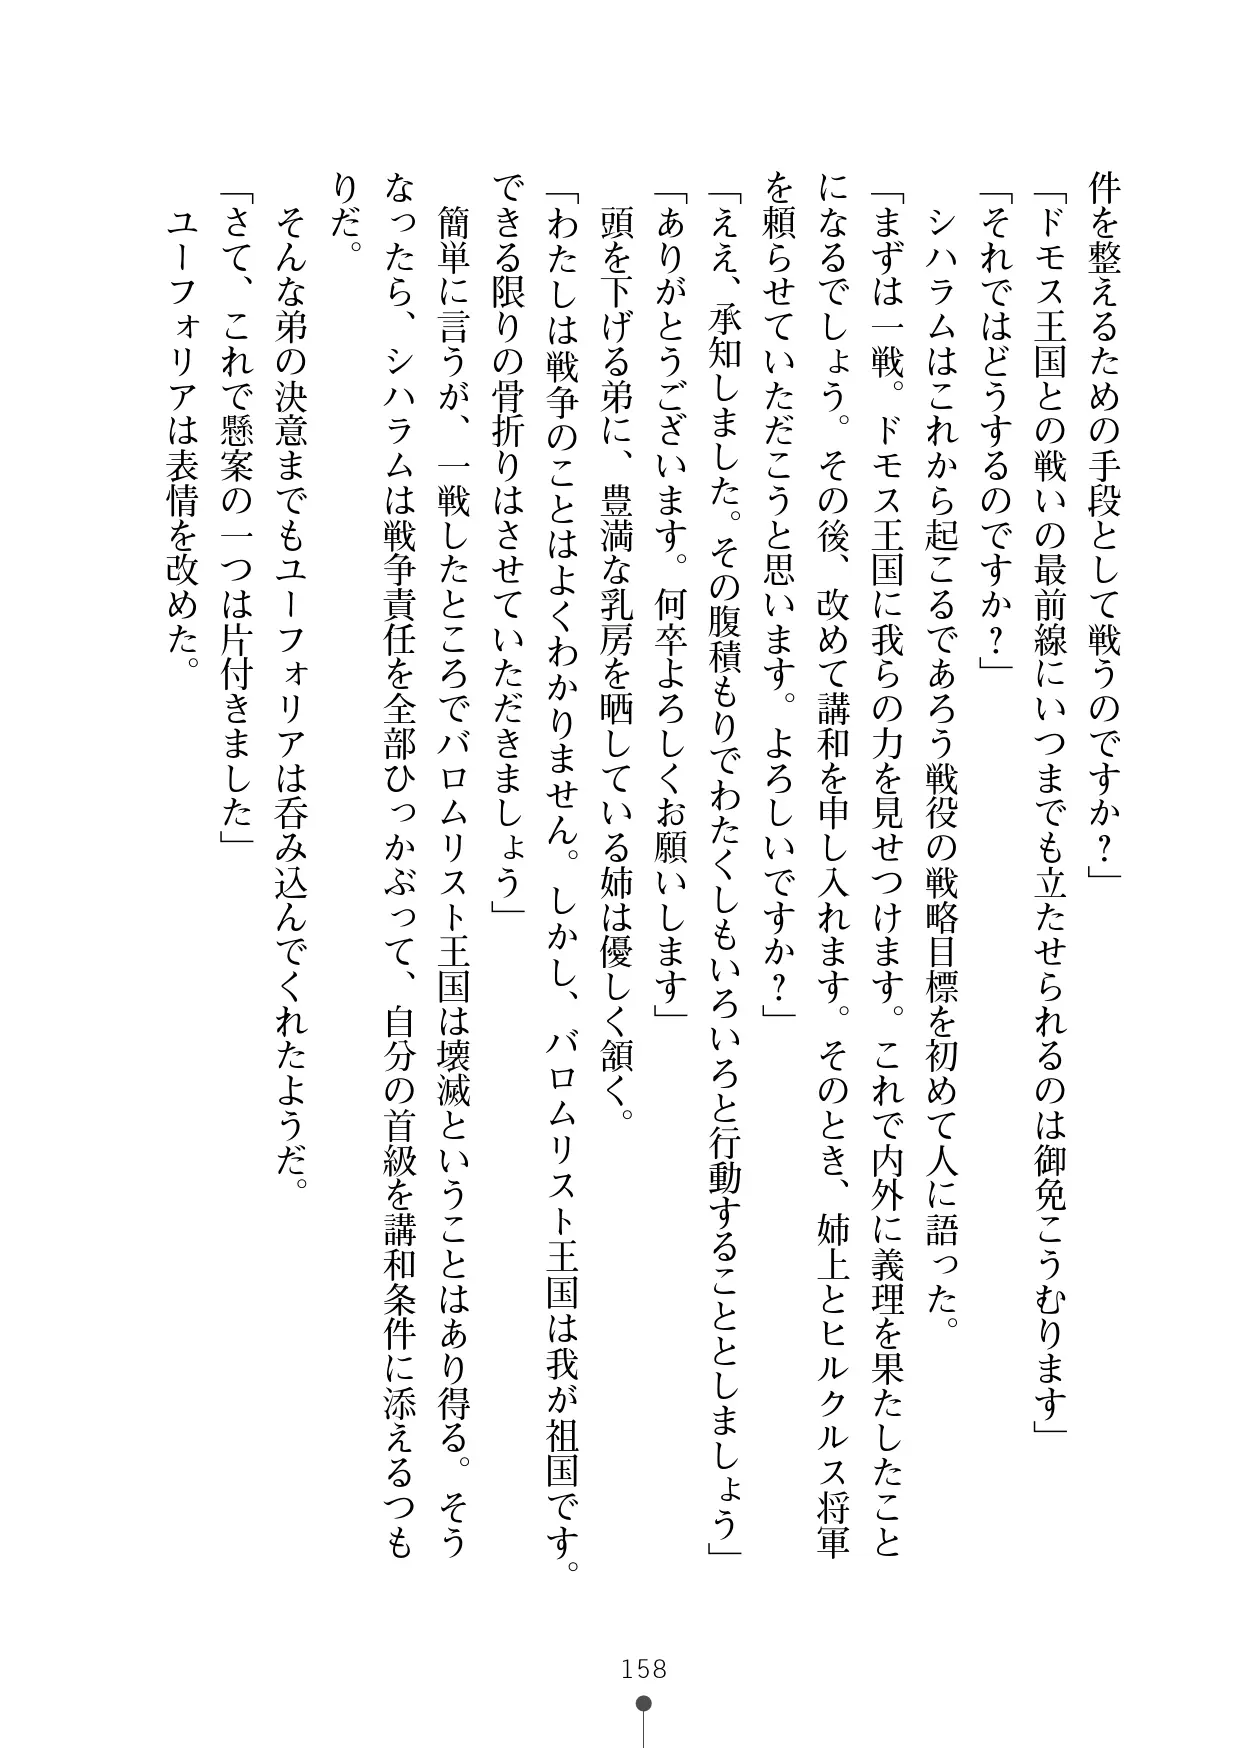 件を整えるための手段として戦うのですか？」
「ドモス王国との戦いの最前線にいつまでも立たせられるのは御免こうむります」
「それではどうするのですか？」
　シハラムはこれから起こるであろう戦役の戦略目標を初めて人に語った。
「まずは一戦。ドモス王国に我らの力を見せつけます。これで内外に義理を果たしたこと
になるでしょう。その後、改めて講和を申し入れます。そのとき、姉上とヒルクルス将軍
を頼らせていただこうと思います。よろしいですか？」
「ええ、承知しました。その腹積もりでわたくしもいろいろと行動することとしましょう」
「ありがとうございます。何卒よろしくお願いします」
　頭を下げる弟に、豊満な乳房を晒している姉は優しく頷く。
「わたしは戦争のことはよくわかりません。しかし、バロムリスト王国は我が祖国です。
できる限りの骨折りはさせていただきましょう」
　簡単に言うが、一戦したところでバロムリスト王国は壊滅ということはあり得る。そう
なったら、シハラムは戦争責任を全部ひっかぶって、自分の首級を講和条件に添えるつも
りだ。
　そんな弟の決意までもユーフォリアは呑み込んでくれたようだ。
「さて、これで懸案の一つは片付きました」
　ユーフォリアは表情を改めた。
158